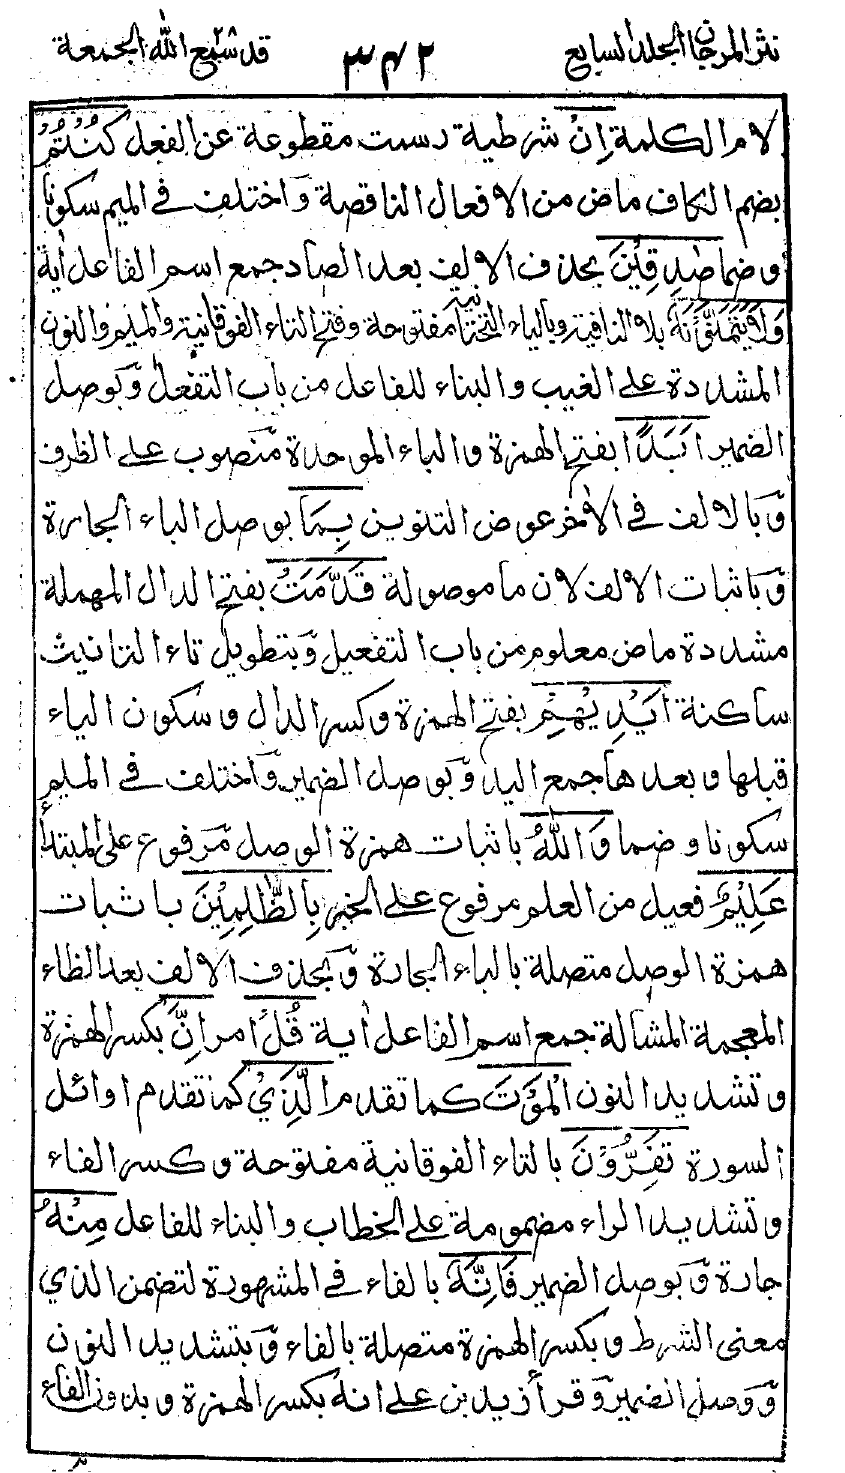 نثر المرجان المجلد السابع ٣٤٢ قد سمع الله الجمعة
لام الكلمة اِنْ شرطية رسمت مقطوعة عن الفعل كُنْتُمْ
بضم الكاف ماض من الافعال الناقصة وّاختلف فى الميم سكونا
وضما صٰدِقِيْنَ بحذف الالف بعد الصاد جمع اسم الفاعل اٰية
وَلَا يَتَمَنَّوْنَهٗ بلا النافية وبالياء التحتانية مفتوحة وفتح التاء الفوقانية والميم والنون
المشددة على الغيب والبناء للفاعل من باب التفعل وّبوصل
الضمير اَبَدًا بفتح الهمزة والباء الموحدة مّنصوب على الظرف
وّبالالف فى الاٰخر عوض التنوين بِمَا بوصل الباء الجارة
وّباثبات الالف لان ما موصولة قَدَّمَتْ بفتح الدال المهملة
مشددة ماض معلوم من باب التفعيل وّبتطويل تاء التانيث
ساكنة اَيْدِيْهِمْ بفتح الهمزة وكسر الدال وسكون الياء
قبلها وبعدها جمع اليد وّبوصل الضمير وّاختلف فى الميم
سكونا وضما وَاللّٰهُ باثبات همزة الوصل مّرفوع على المبتدأ
عَلِيْمٌ فعيل من العلم مرفوع على الخبر بِالظّٰلِمِيْنَ باثبات
همزة الوصل متصلة بالباء الجارة وّبحذف الالف بعد الظاء
المعجمة المشالة جمع اسم الفاعل اٰية قُلْ امر اِنَّ بكسر الهمزة
وتشديد النون الْمَوْتَ كما تقدم الَّذِيْ كما تقدم اوائل
السورة تَفِرُّوْنَ بالتاء الفوقانية مفتوحة وكسر الفاء
وتشديد الراء مضمومة على الخطاب والبناء للفاعل مِنْهُ
جارة وّبوصل الضمير فَاِنَّهٗ بالفاء فى المشهورة لتضمن الذي
معنى الشرط وبكسر الهمزة متصلة بالفاء وّبتشديد النون
وّوصل الضمير وّقرأ زيد بن على انه بكسر الهمزة وبدون الفاء